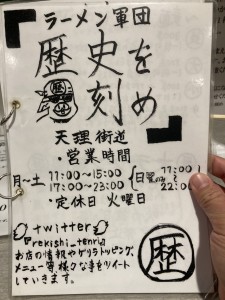 ラーメン軍団
歴史を
刻め
天理街道
・営業時間
月〜土 11:00〜15:00
17:00〜23:00
日 11:00
〜
22:00
・定休日 火曜日
twitter
『rekishi_tenri』
お店の情報やゲリラトッピング、
メニュー等様々な事をツイート
していきます。
歴